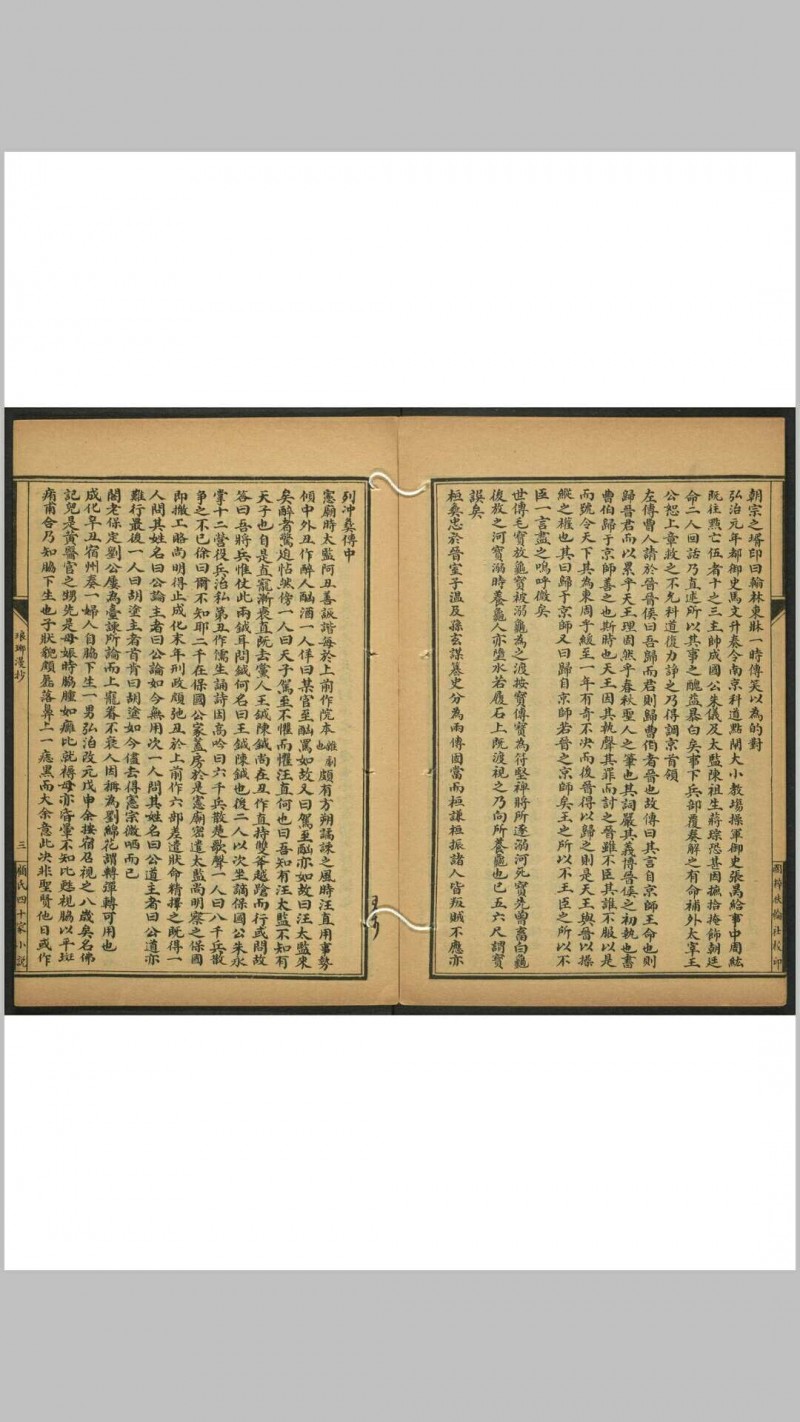 朝宗之壻印曰翰林東牀一時傳笑以為的對
弘治元年都御史馬文升奏令南京科道點閘大小教場操軍御史張昺給事中周紘
既往㸃亡伍者十之三主帥成國公朱儀及太監陳祖生蔣琮恐甚因摭拾掩飾朝廷
命二人回話乃直述所以其事之醜益暴白矣事下兵部覆奏解之有命補外太宰王
公恕上章救之不允科道復力諍之乃得調京首領
左傳曹人請於晉晉侯曰吾歸而君則歸曹伯者晉也故傳曰其言自京師王命也則
歸晉君而以累乎天王理固然乎春秋聖人之筆也其詞嚴其義博晉侯之初執也書
曹伯歸于京師善之也斯時也天王因其執聲其罪而討之晉雖不臣其誰不服以是
而號令天下其為東周乎緩至一年有奇不决而後晉得以歸之則是天王與晉以操
縱之權也其曰歸于京師又曰歸自京師若晉之京師矣王之所以不王臣之所以不
臣一言盡之嗚呼微矣
世傳毛寶放龜寶被溺龜為之渡按寶傳寶為苻堅裨將所逐溺河死寶先曾畜白龜
後放之河寶溺時養龜人亦墮水若履石上既渡視之乃向所養龜也已五六尺謂寶
誤矣
桓彝忠於晉室子溫及孫玄謀簒史分為兩傳固當而桓謙桓振諸人皆叛賊不應亦
國粹𠜇倫社校印
列冲彝傳中
憲廟時太監阿丑善詼諧每於上前作院本也雜劇頗有方朔譎諫之風時汪直用事勢
傾中外丑作醉人酗酒一人佯曰某官至酗罵如故又曰駕至酗亦如故曰汪太監來
矣醉者驚廹帖然傍一人曰天子駕至不懼而懼汪直何也曰吾知有汪太監不知有
天子也自是直寵漸衰直既去黨人王鉞陳鉞尚在丑作直持雙斧趨蹌而行或問故
答曰吾將兵惟仗此兩鉞耳問鉞何名曰王鉞陳鉞也後二人以次坐謫保國公朱永
掌十二營役兵治私第丑作儒生誦詩因高吟曰六千兵散楚歌聲一人曰八千兵散
爭之不已徐曰爾不知耶二千在保國公家蓋房於是憲廟密遣太監尚明察之保國
即撤工賂尚明得止成化末年刑政頗弛丑於上前作六部差遣狀命精擇之既得一
人問其姓名曰公論主者曰公論如今無用次一人問其姓名曰公道主者曰公道亦
難行最後一人曰胡塗主者首肯曰胡塗如今儘去得憲宗微哂而已
閣老保定劉公屢為臺諫所論而上寵眷不衰人因稱為劉綿花謂轉彈轉可用也
成化辛丑宿州奏一婦人自脇下生一男弘治改元戊申余按宿召視之八歲矣名佛
記兒是黃醫官之甥先是母娠時脇腫如癰比就褥母亦昏暈不知比甦視脇以平斑
痏甫合乃知脇下生也子狀貌頗磊落鼻上一痣黑而大余意此决非聖賢他日或作
琅琊漫抄
三
顧氏四十家小說